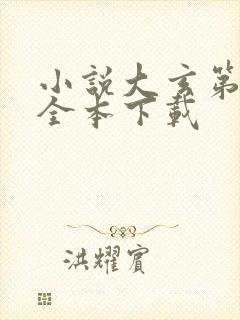 小說大玄第
全本下載
洪耀賓